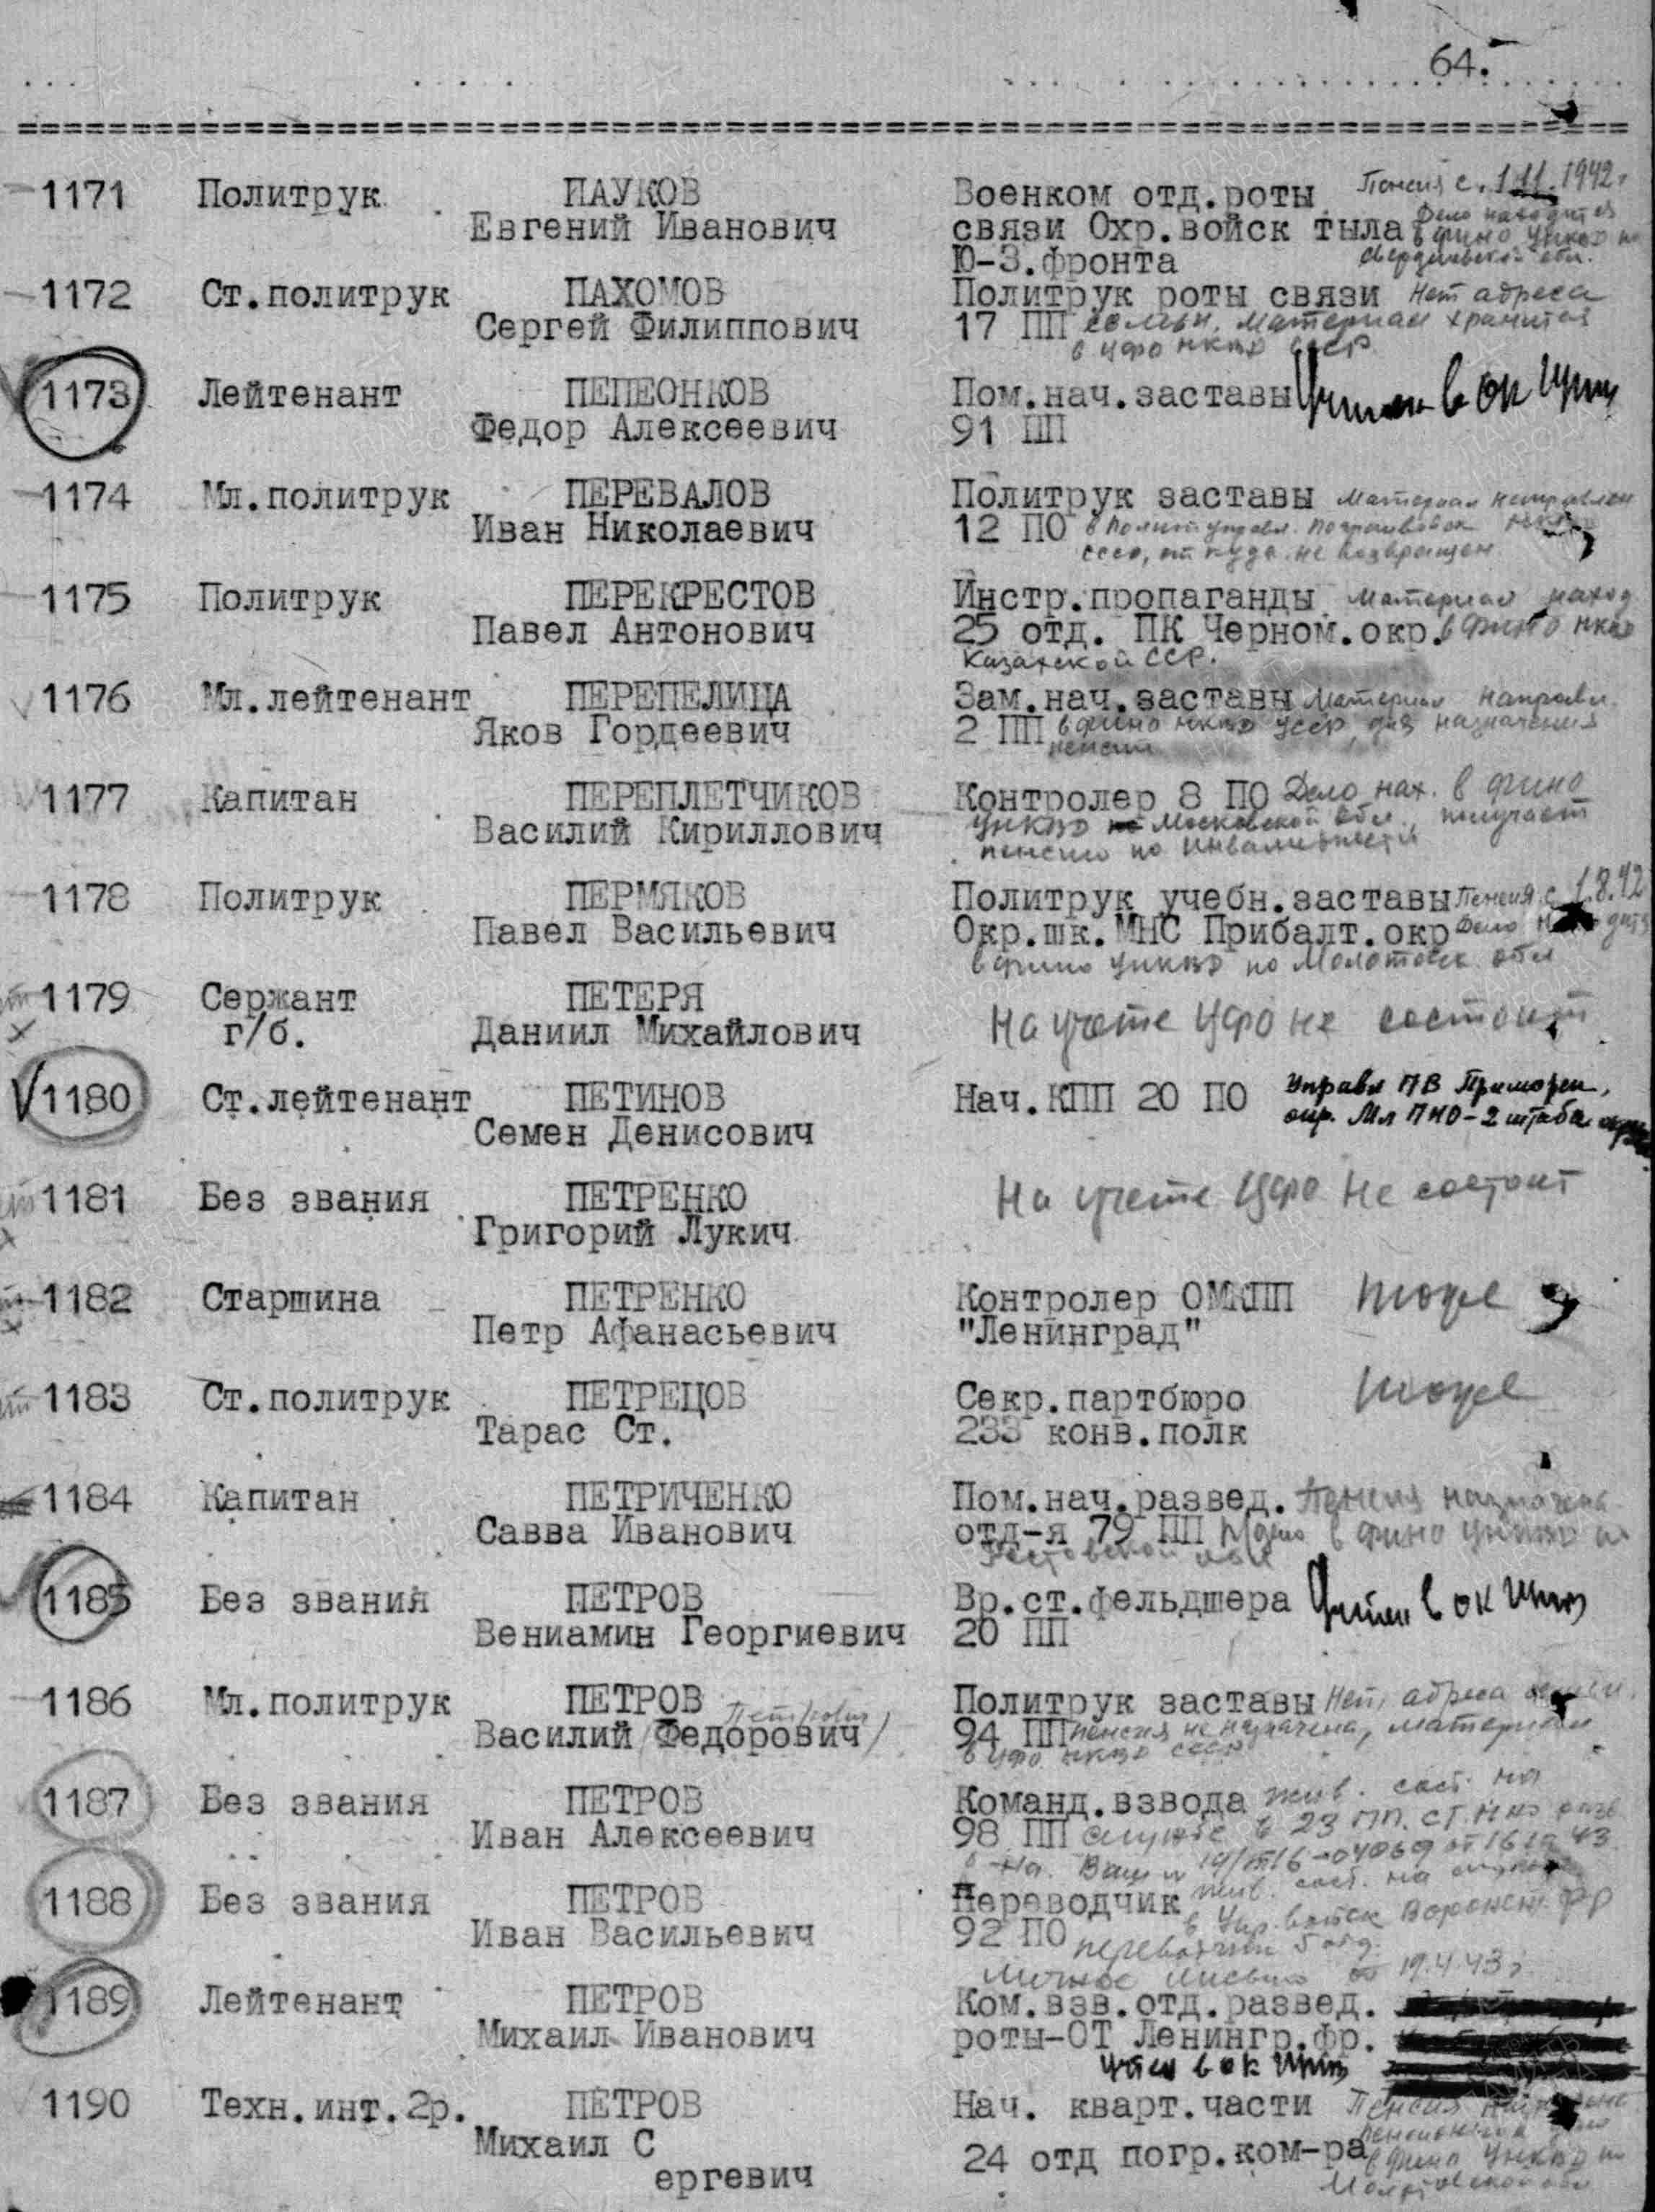 64.
1171 Политрук ПАУКОВ Военком отд.роты Пенсия с 1.11.1942г
Евгений Иванович связи Охр.войск тыла Дело находится
Ю-З.фронта в фино УНКВД по Свердловской обл.
1172 Ст.политрук ПАХОМОВ Политрук роты связи Нет адреса
Сергей Филиппович 17 ПП семьи. Материал хранится
в ЦФО НКВД СССР
1173 Лейтенант ПЕПЕОНКОВ Пом.нач.заставы Учтен в ОК
Федор Алексеевич 91 ПП
1174 Мл.политрук ПЕРЕВАЛОВ Политрук заставы Материал направлен
Иван Николаевич 12 ПО в Полит управл. Погранвойск НКВД
СССР, откуда не возвращен
1175 Политрук ПЕРЕКРЕСТОВ Инстр.пропаганды Материал наход
Павел Антонович 25 отд. ПК Черном.окр. в фино НКВД
Казахской ССР.
1176 Мл.лейтенант ПЕРЕПЕЛИЦА Зам.нач.заставы Материал направл.
Яков Гордеевич 2 ПП в фино НКВД УССР для назначения
пенсии
1177 Капитан ПЕРЕПЛЕТЧИКОВ Контролер 8 ПО Дело нах. в фино
Василий Кириллович УНКВД Московской обл., получает
пенсию по инвалидности
1178 Политрук ПЕРМЯКОВ Политрук учебн.заставы Пенсия с 1.8.42
Павел Васильевич Окр.шк.МНС Прибалт.окр Дело
в фино УНКВД по Молотовск. обл
1179 Сержант ПЕТЕРЯ На учете ЦФО не состоит
г/б. Даниил Михайлович
1180 Ст.лейтенант ПЕТИНОВ Нач.КПП 20 ПО Управл ПВ Приморск,
Семен Денисович окр. Мл ПНО-2 штаба
1181 Без звания ПЕТРЕНКО На учете ЦФО не состоит
Григорий Лукич
1182 Старшина ПЕТРЕНКО Контролер ОМКПП тоже
Петр Афанасьевич "Ленинград"
1183 Ст.политрук ПЕТРЕЦОВ Секр.партбюро тоже
Тарас Ст. 233 конв.полк
1184 Капитан ПЕТРИЧЕНКО Пом.нач.развед. Пенсия назначена
Савва Иванович отд-я 79 ПП в фино УНКВД по
Ростовской обл
1185 Без звания ПЕТРОВ Вр.ст.фельдшера Учтен в ОК
Вениамин Георгиевич 20 ПП
1186 Мл.политрук ПЕТРОВ Политрук заставы Нет адреса семьи.
Василий /Федорович/ 94 ПП пенсия не назначена, материал
в ЦФО НКВД СССР
1187 Без звания ПЕТРОВ Команд.взвода жив. сост. на
Иван Алексеевич 98 ПП службе в 23 ПП.
1188 Без звания ПЕТРОВ Переводчик жив. сост. на службе
Иван Васильевич 92 ПО в Упр. войск Воронеж. фр
переводчик 5 отд.
Личное письмо от 19.4.43г
1189 Лейтенант ПЕТРОВ Ком.взв.отд.развед.
Михаил Иванович роты-ОТ Ленингр.фр.
учтен в ОК
1190 Техн.инт.2р. ПЕТРОВ Нач. кварт.части Пенсия
Михаил С 24 отд погр.ком-ра
ергевич в фино УНКВД по